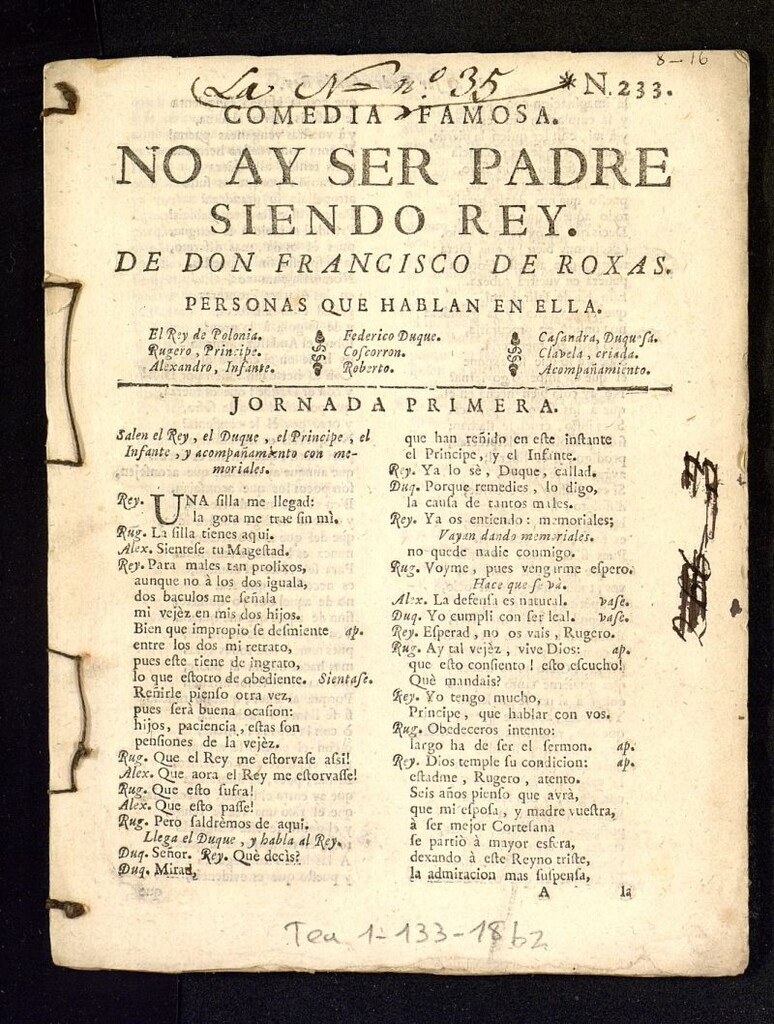 8-16
La N n.º 35 * N. 233.
COMEDIA FAMOSA.
NO AY SER PADRE
SIENDO REY.
DE DON FRANCISCO DE ROXAS.
PERSONAS QUE HABLAN EN ELLA.
El Rey de Polonia.
Rugero, Principe.
Alexandro, Infante.
Federico Duque.
Coſcorron.
Roberto.
Caſandra, Duqueſa.
Clavela, criada.
Acompañamiento.
JORNADA PRIMERA.
Salen el Rey, el Duque, el Principe, el
Infante, y acompañamiento con me-
moriales.
Rey. UNA ſilla me llegad:
la gota me trae ſin mì.
Rug. La ſilla tienes aqui.
Alex. Sienteſe tu Mageſtad.
Rey. Para males tan prolixos,
aunque no à los dos iguala,
dos baculos me ſeñala
mi vejèz en mis dos hijos.
Bien que impropio ſe deſmiente ap.
entre los dos mi retrato,
pues eſte tiene de ingrato,
lo que eſtotro de obediente. Sientaſe.
Reñirle pienſo otra vez,
pues ſerà buena ocaſion:
hijos, paciencia, eſtas ſon
penſiones de la vejèz.
Rug. Que el Rey me eſtorvaſe aſsi!
Alex. Que aora el Rey me eſtorvaſſe!
Rug. Que eſto ſufra!
Alex. Que eſto paſſe!
Rug. Pero ſaldrèmos de aqui.
Llega el Duque, y habla al Rey.
Duq. Señor. Rey. Què decìs?
Duq. Mirad,
que
que han reñido en eſte inſtante
el Principe, y el Infante.
Rey. Ya lo sè, Duque, callad.
Duq. Porque remedies, lo digo,
la cauſa de tantos males.
Rey. Ya os entiendo: memoriales;
Vayan dando memoriales.
no quede nadie conmigo.
Rug. Voyme, pues vengarme eſpero.
Hace que ſe và.
Alex. La defenſa es natural. vaſe.
Duq. Yo cumplì con ſer leal. vaſe.
Rey. Eſperad, no os vais, Rugero.
Rug. Ay tal vejèz, vive Dios: ap.
que eſto conſiento! eſto eſcucho!
Què mandais?
Rey. Yo tengo mucho,
Principe, que hablar con vos.
Rug. Obedeceros intento:
largo ha de ſer el ſermon. ap.
Rey. Dios temple ſu condicion: ap.
eſtadme, Rugero, atento.
Seis años pienſo que avrà,
que mi eſpoſa, y madre vueſtra,
à ſer mejor Corteſana
ſe partiò à mayor esfera,
dexando à eſte Reyno triſte,
la admiracion mas ſuſpenſa,
A la
Tea 1-133-1862